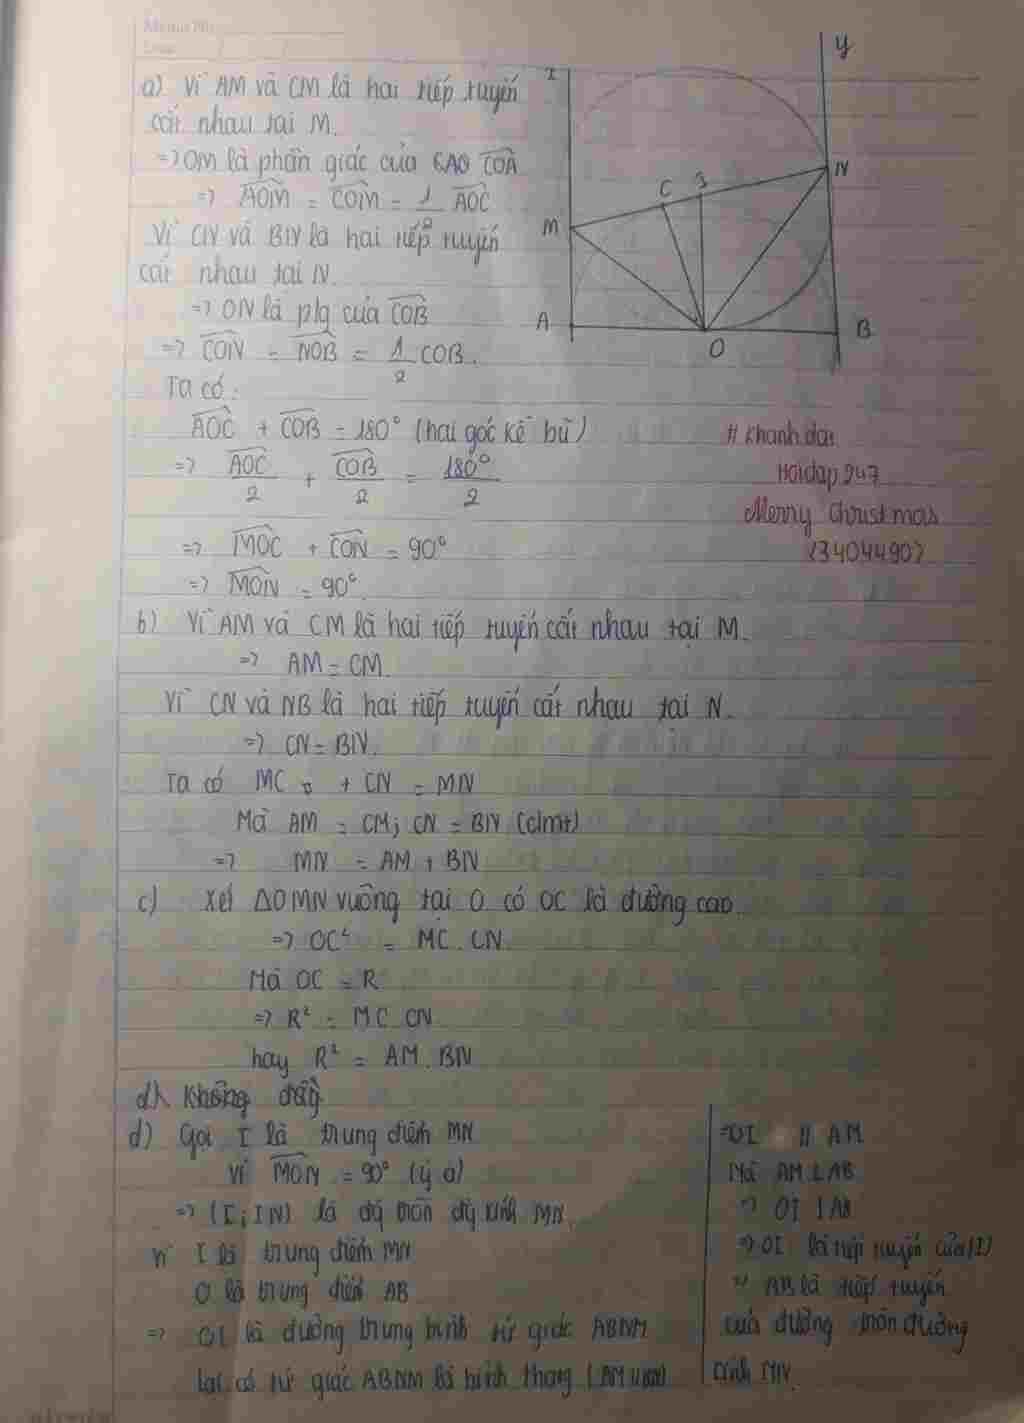 a) Vì AM và CM là hai tiếp tuyến
cắt nhau tại M.
=> OM là phân giác của CAO COA
=> AOM = COM = 1/2 AOC
Vì CN và BN là hai tiếp tuyến
cắt nhau tại N.
=> ON là p/g của COB
=> CON = NOB = 1/2 COB.
Ta có:
AOC + COB = 180° (hai góc kề bù)
=> AOC/2 + COB/2 = 180°/2
=> MOC + CON = 90°
=> MON = 90°.
y
N
C
M
A
O
B
# Khanh
Hoidap247
Merry Christmas
(3404490)
b) Vì AM và CM là hai tiếp tuyến cắt nhau tại M.
=> AM = CM.
Vì CN và NB là hai tiếp tuyến cắt nhau tại N.
=> CN = BN.
Ta có MC + CN = MN
Mà AM = CM; CN = BN (cmt)
=> MN = AM + BN
c) Xét ΔOMN vuông tại O có OC là đường cao.
=> OC² = MC. CN
Mà OC = R
=> R² = MC. CN
hay R² = AM. BN
d) Không
d) Gọi I là trung điểm MN
Vì MON = 90° (ý a)
=> (I; IN) là đg tròn đg kính MN.
Vì I là trung điểm MN
O là trung điểm AB
=> OI là đường trung bình tứ giác ABNM
lại có tứ giác ABNM là hình thang
=> OI // AM
Mà AM ⊥ AB
=> OI ⊥ AB
=> OI là tiếp tuyến của (I)
=> AB là tiếp tuyến
của đường tròn đường
kính MN.